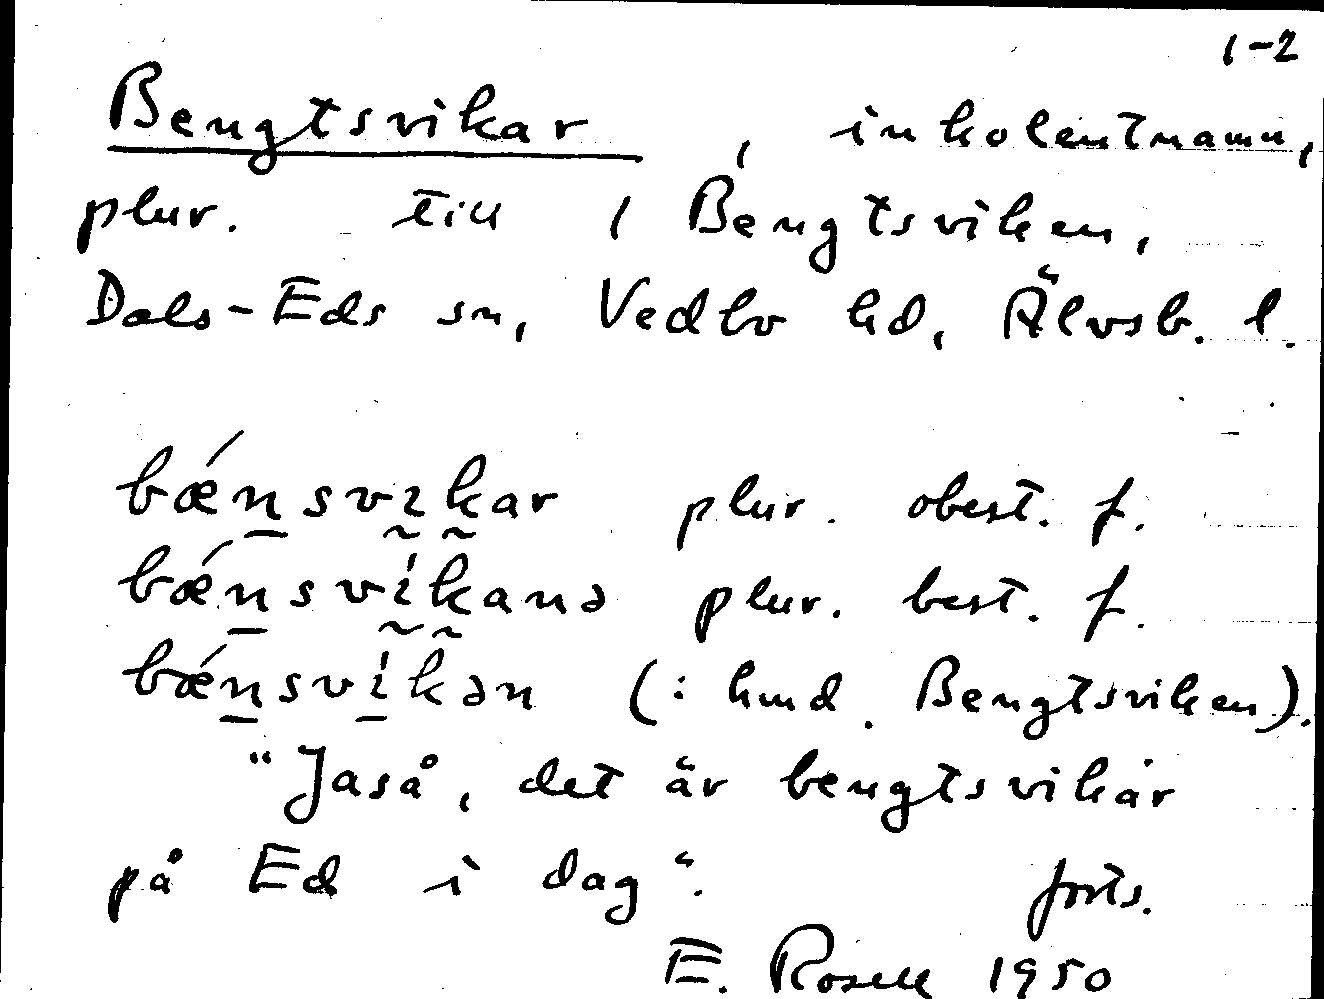 1-2
Bengtsvikar, inkolentnamn,
plur. till 1 Bengtsviken,
Dals-Eds sn, Vedbo hd, Älvsb. l.
bǽn̠svɪ̰k̰ar plur. obest. f.
bǽn̠svḭ́k̰anə plur. best. f.
bǽn̠sví̠kən (: hmd. Bengtsviken).
"Jaså, det är bengtsvikar
på Ed i dag". forts.
E. Rosell 1950